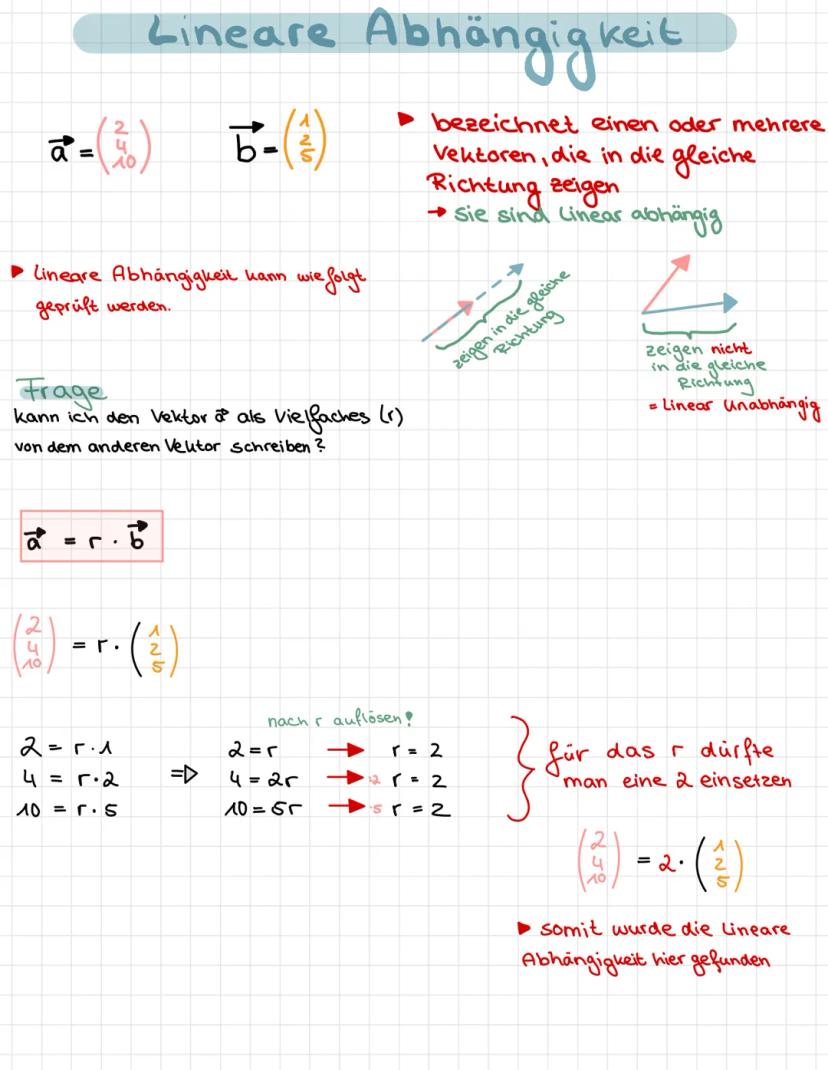 Lineare Abhängigkeit
a⃗ = (2 4 10)
b⃗ = (1 2 5)
▶ bezeichnet einen oder mehrere
Vektoren, die in die gleiche
Richtung zeigen
→ sie sind linear abhängig
▶ Lineare Abhängigkeit kann wie folgt
geprüft werden.
zeigen in die gleiche
Richtung
zeigen nicht
in die gleiche
Richtung
= Linear Unabhängig
Frage
kann ich den Vektor a⃗ als Vielfaches (r)
von dem anderen Vektor schreiben?
a⃗ = r · b⃗
(2 4 10) = r · (1 2 5)
nach r auflösen!
2 = r · 1 ⇒ 2 = r → r = 2
4 = r · 2 4 = 2r → :2 r = 2
10 = r · 5 10 = 5r → :5 r = 2
} für das r dürfte
man eine 2 einsetzen
(2 4 10) = 2 · (1 2 5)
▶ somit wurde die Lineare
Abhängigkeit hier gefunden